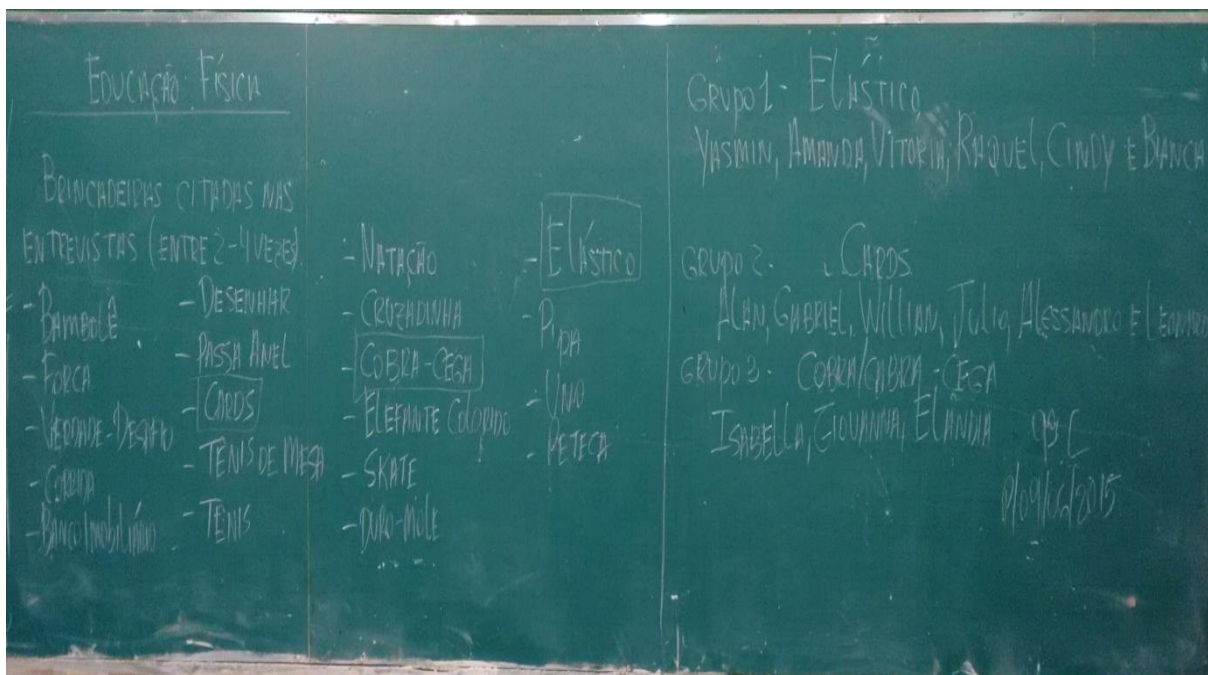 EDUCAÇÃO FÍSICA
BRINCADEIRAS CITADAS NAS
ENTREVISTAS (ENTRE 2-4 VEZES).
- BAMBOLÊ
- FORCA
- VERDADE-DESAFIO
- CORRIDA
- BANCO IMOBILIÁRIO
- DESENHAR
- PASSA ANEL
- CARDS
- TÊNIS DE MESA
- TÊNIS
- NATAÇÃO
- CRUZADINHA
- COBRA-CEGA
- ELEFANTE COLORIDO
- SKATE
- DURO-MOLE
- ELÁSTICO
- PIPA
- UNO
- PETECA
GRUPO 1- ELÁSTICO
YASMIN, AMANDA, VITORIA, RAQUEL, CINDY E BIANCA
GRUPO 2- CARDS
ALAN, GABRIEL, WILLIAN, JULIO, ALESSANDRO E LEONARDO
GRUPO 3- COBRA/CABRA-CEGA
ISABELLA, GIOVANNA, ELANDIA
P/09/06/2015